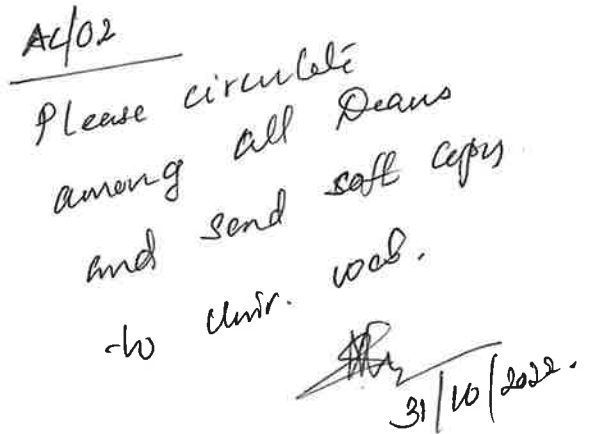 AC/02
Please circulate
among all Deans
and send soft copy
to Univ. web.
31/10/2022.